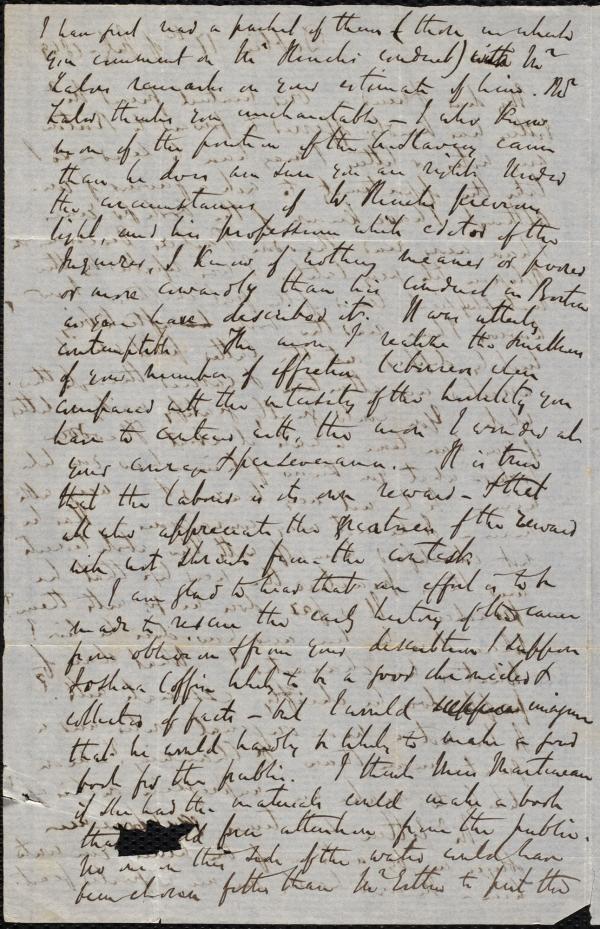 I have just read a packet of them (those in which
you comment on Mr. Hincks's conduct) with Mr
remarks on your estimate of him. Mr
thinks you uncharitable – I who know
more of the position of the antislavery cause
than he does am sure you are right. Under
the circumstances of W. Hincks previous
light, and his profession while editor of the
Inquirer, I know of nothing meaner or poorer
or more cowardly than his conduct in Boston
as you have described it. It was utterly
contemptible. The more I realize the smallness
of your number of effective laborers when
compared with the intensity of the hostility you
have to contend with, the more I wonder at
your courage & perseverance. It is true
that the labour is its own reward – & that
all who appreciate the greatness of the reward
will not shrink from the contest.
I am glad to hear that an effort is to be
made to rescue the early history of the cause
from oblivion & from your description I suppose
Joshua Coffin likely to be a good chronicler &
collector of facts – but I would imagine
that he would hardly be likely to make a good
book for the public. I think Miss Martineau
if she had the materials could make a book
that force attention from the public.
No one on this side of the water could have
been chosen fitter than Mr. Estlin to put the